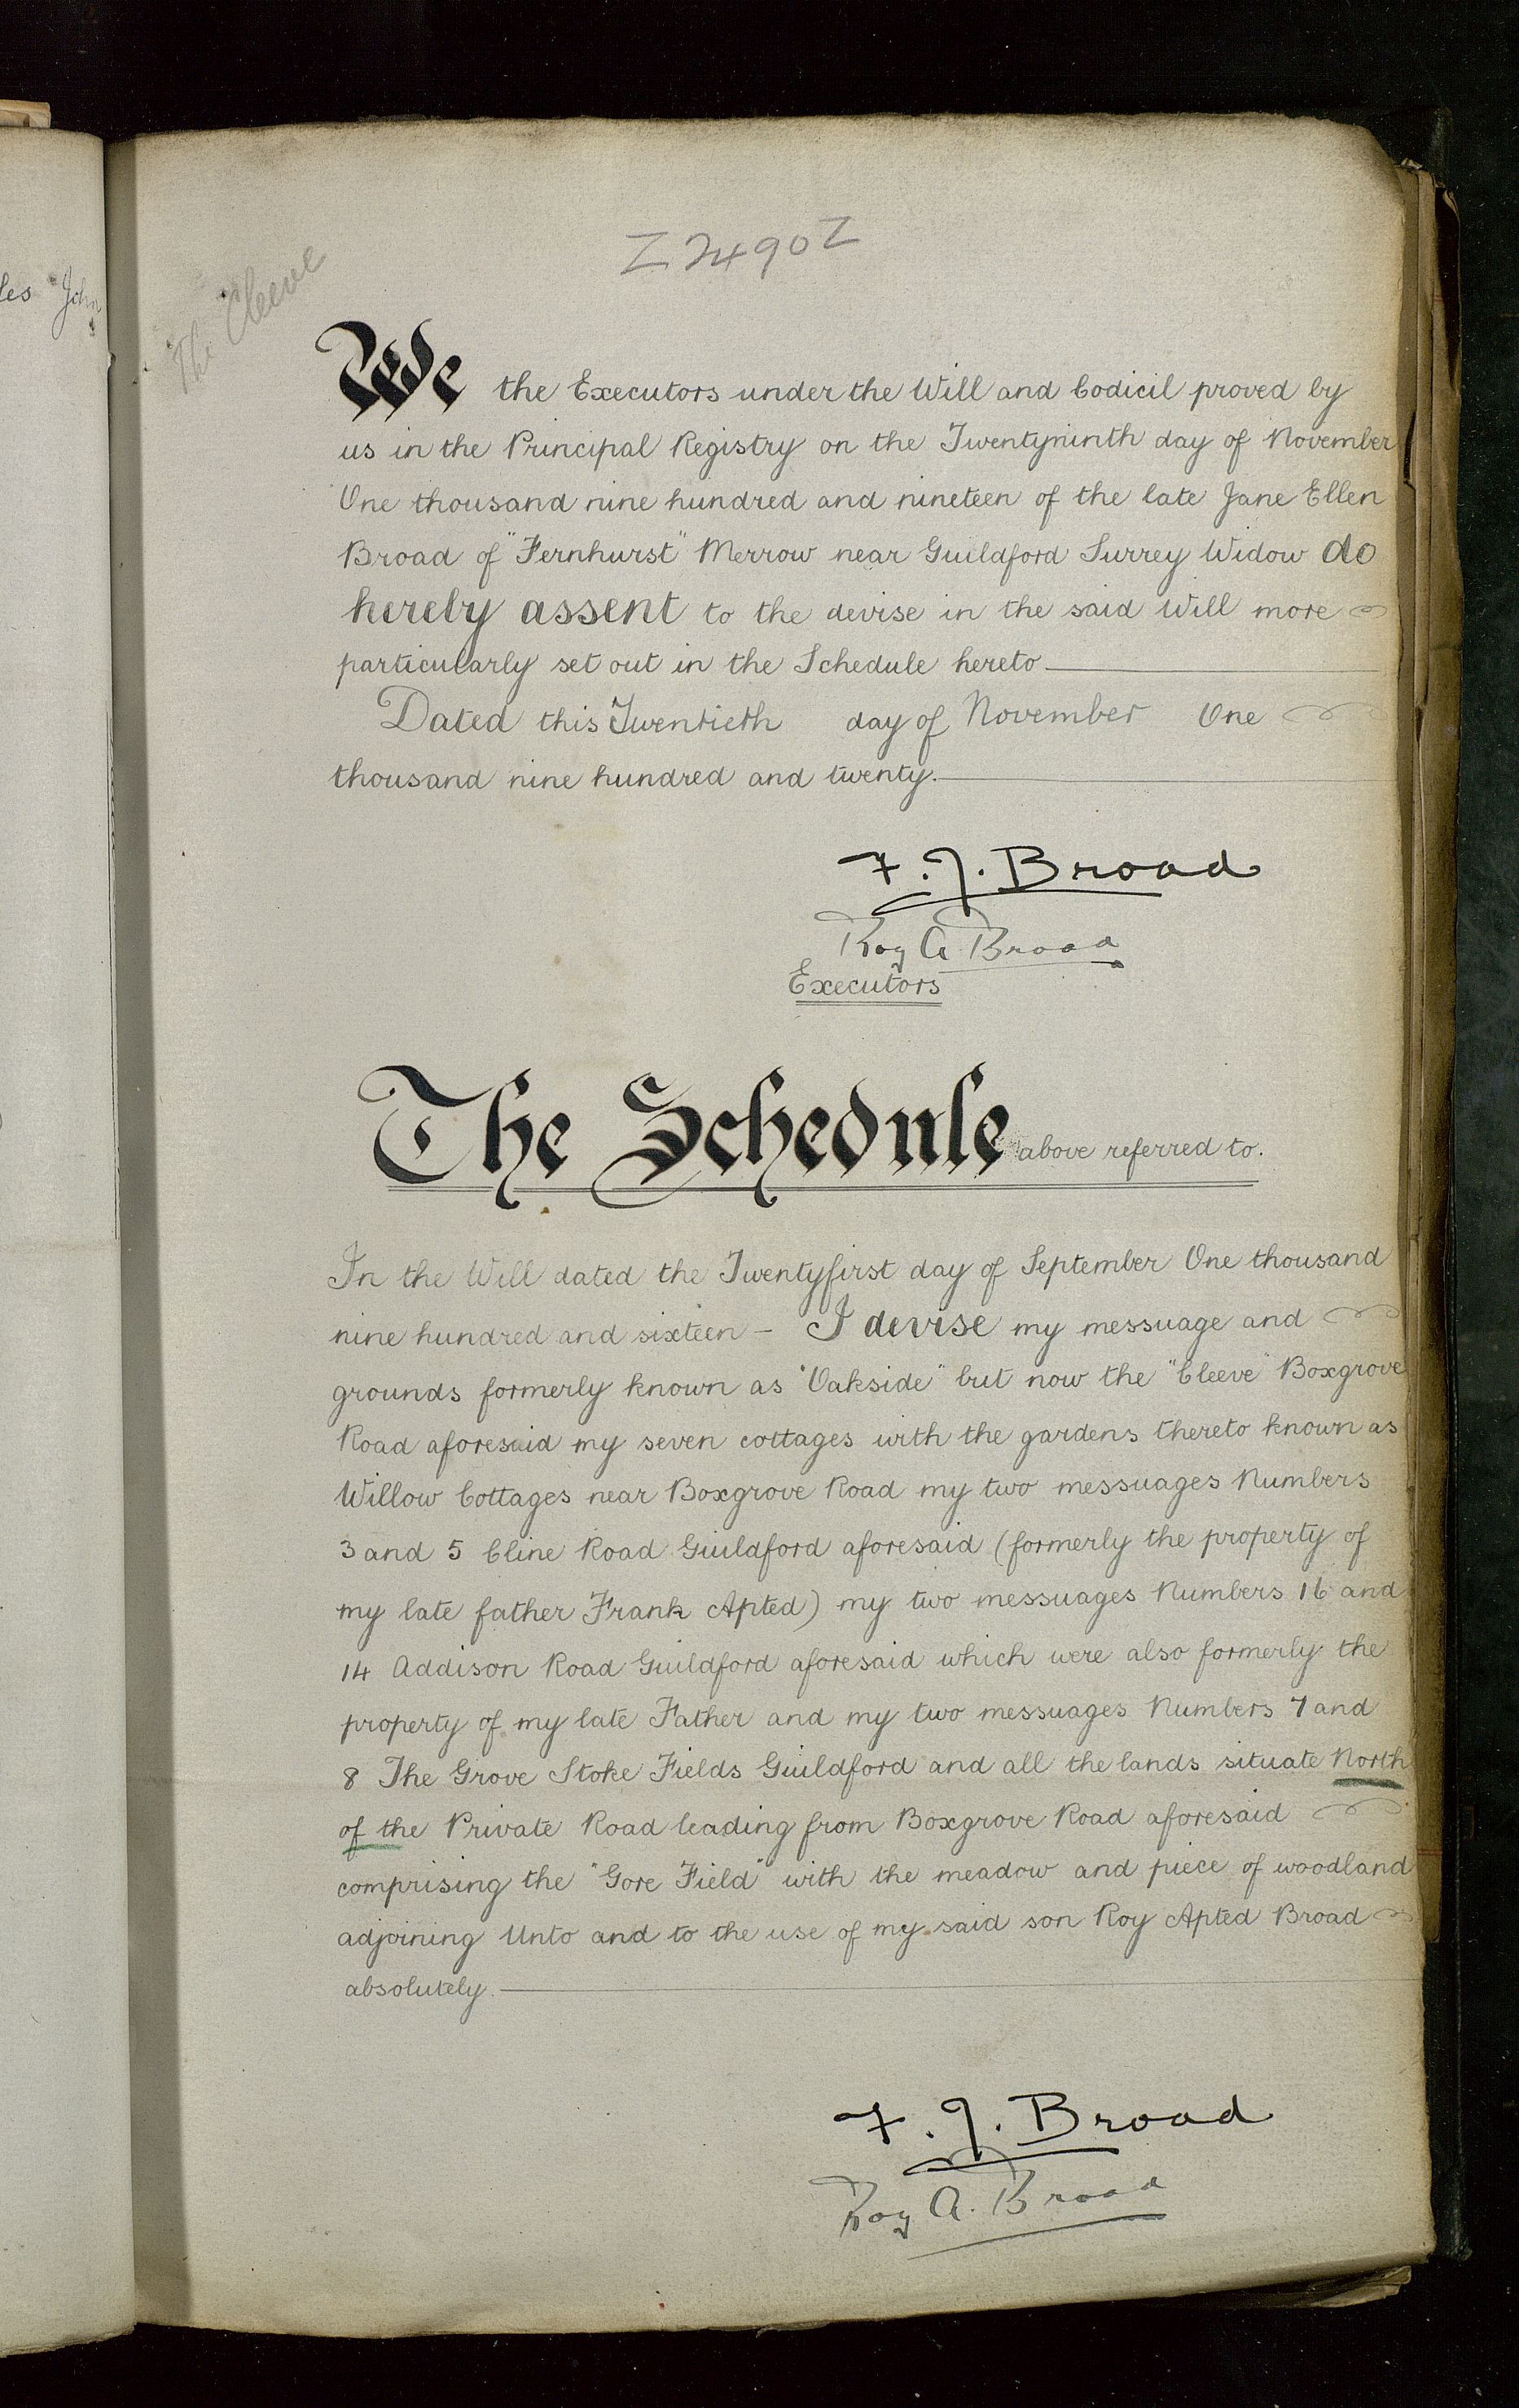 les John
Z 2490 Z
The Cleeve
We the Executors under the Will and Codicil proved by
us in the Principal Registry on the Twentyninth day of November
One thousand nine hundred and nineteen of the late Jane Ellen
Broad of "Fernhurst" Merrow near Guildford Surrey Widow do
hereby assent to the devise in the said Will more
particularly set out in the Schedule hereto
Dated this Twentieth day of November One
thousand nine hundred and twenty.
F. J. Broad
Roy A Broad
Executors
The Schedule above referred to.
In the Will dated the Twentyfirst day of September One thousand
nine hundred and sixteen - I devise my messuage and
grounds formerly known as "Oakside" but now the "Cleeve" Boxgrove
Road aforesaid my seven cottages with the gardens thereto known as
Willow Cottages near Boxgrove Road my two messuages Numbers
3 and 5 Cline Road Guildford aforesaid (formerly the property of
my late father Frank Apted) my two messuages Numbers 16 and
14 Addison Road Guildford aforesaid which were also formerly the
property of my late Father and my two messuages Numbers 7 and
8 The Grove Stoke Fields Guildford and all the lands situate North
of the Private Road leading from Boxgrove Road aforesaid
comprising the "Gore Field" with the meadow and piece of woodland
adjoining Unto and to the use of my said son Roy Apted Broad
absolutely.
F. J. Broad
Roy A. Broad